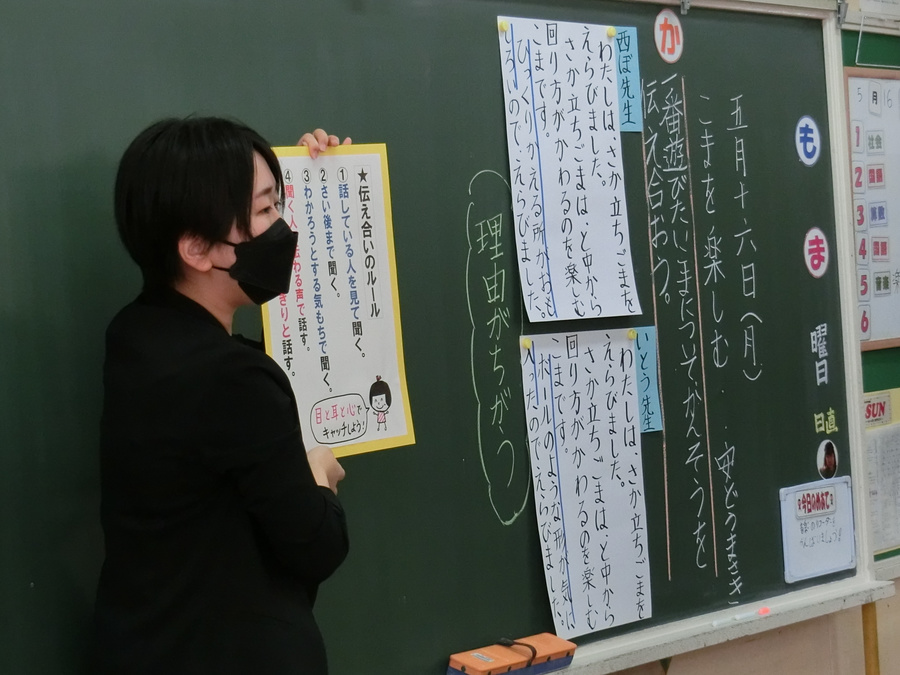 五月十六日(月)
こまを楽しむ 安どうまさき
一番遊びたいこまについてかんそうを
伝え合おう。
か
も
ま
曜日
日直
今日のめあて
西ぼ先生
わたしは、さか立ちごまを
えらびました。
さか立ちごまは、と中から
回り方がかわるのを楽しむ
こまです。
ひっくりかえる所がおも
しろいので、えらびました。
いとう先生
わたしは、さか立ちごまを
えらびました。
さか立ちごまは、と中から
回り方がかわるのを楽しむ
こまです。
ボールのような形が気に
入ったのでえらびました。
理由がちがう
★伝え合いのルール
①話している人を見て聞く。
②さい後まで聞く。
③わかろうとする気もちで聞く。
④聞く人 伝わる声で話す。
きりと話す。
目と耳と心で
キャッチしよう!
5月16
1 社会
2 国語
3 算数
4 国語
5 音楽
6
SUN